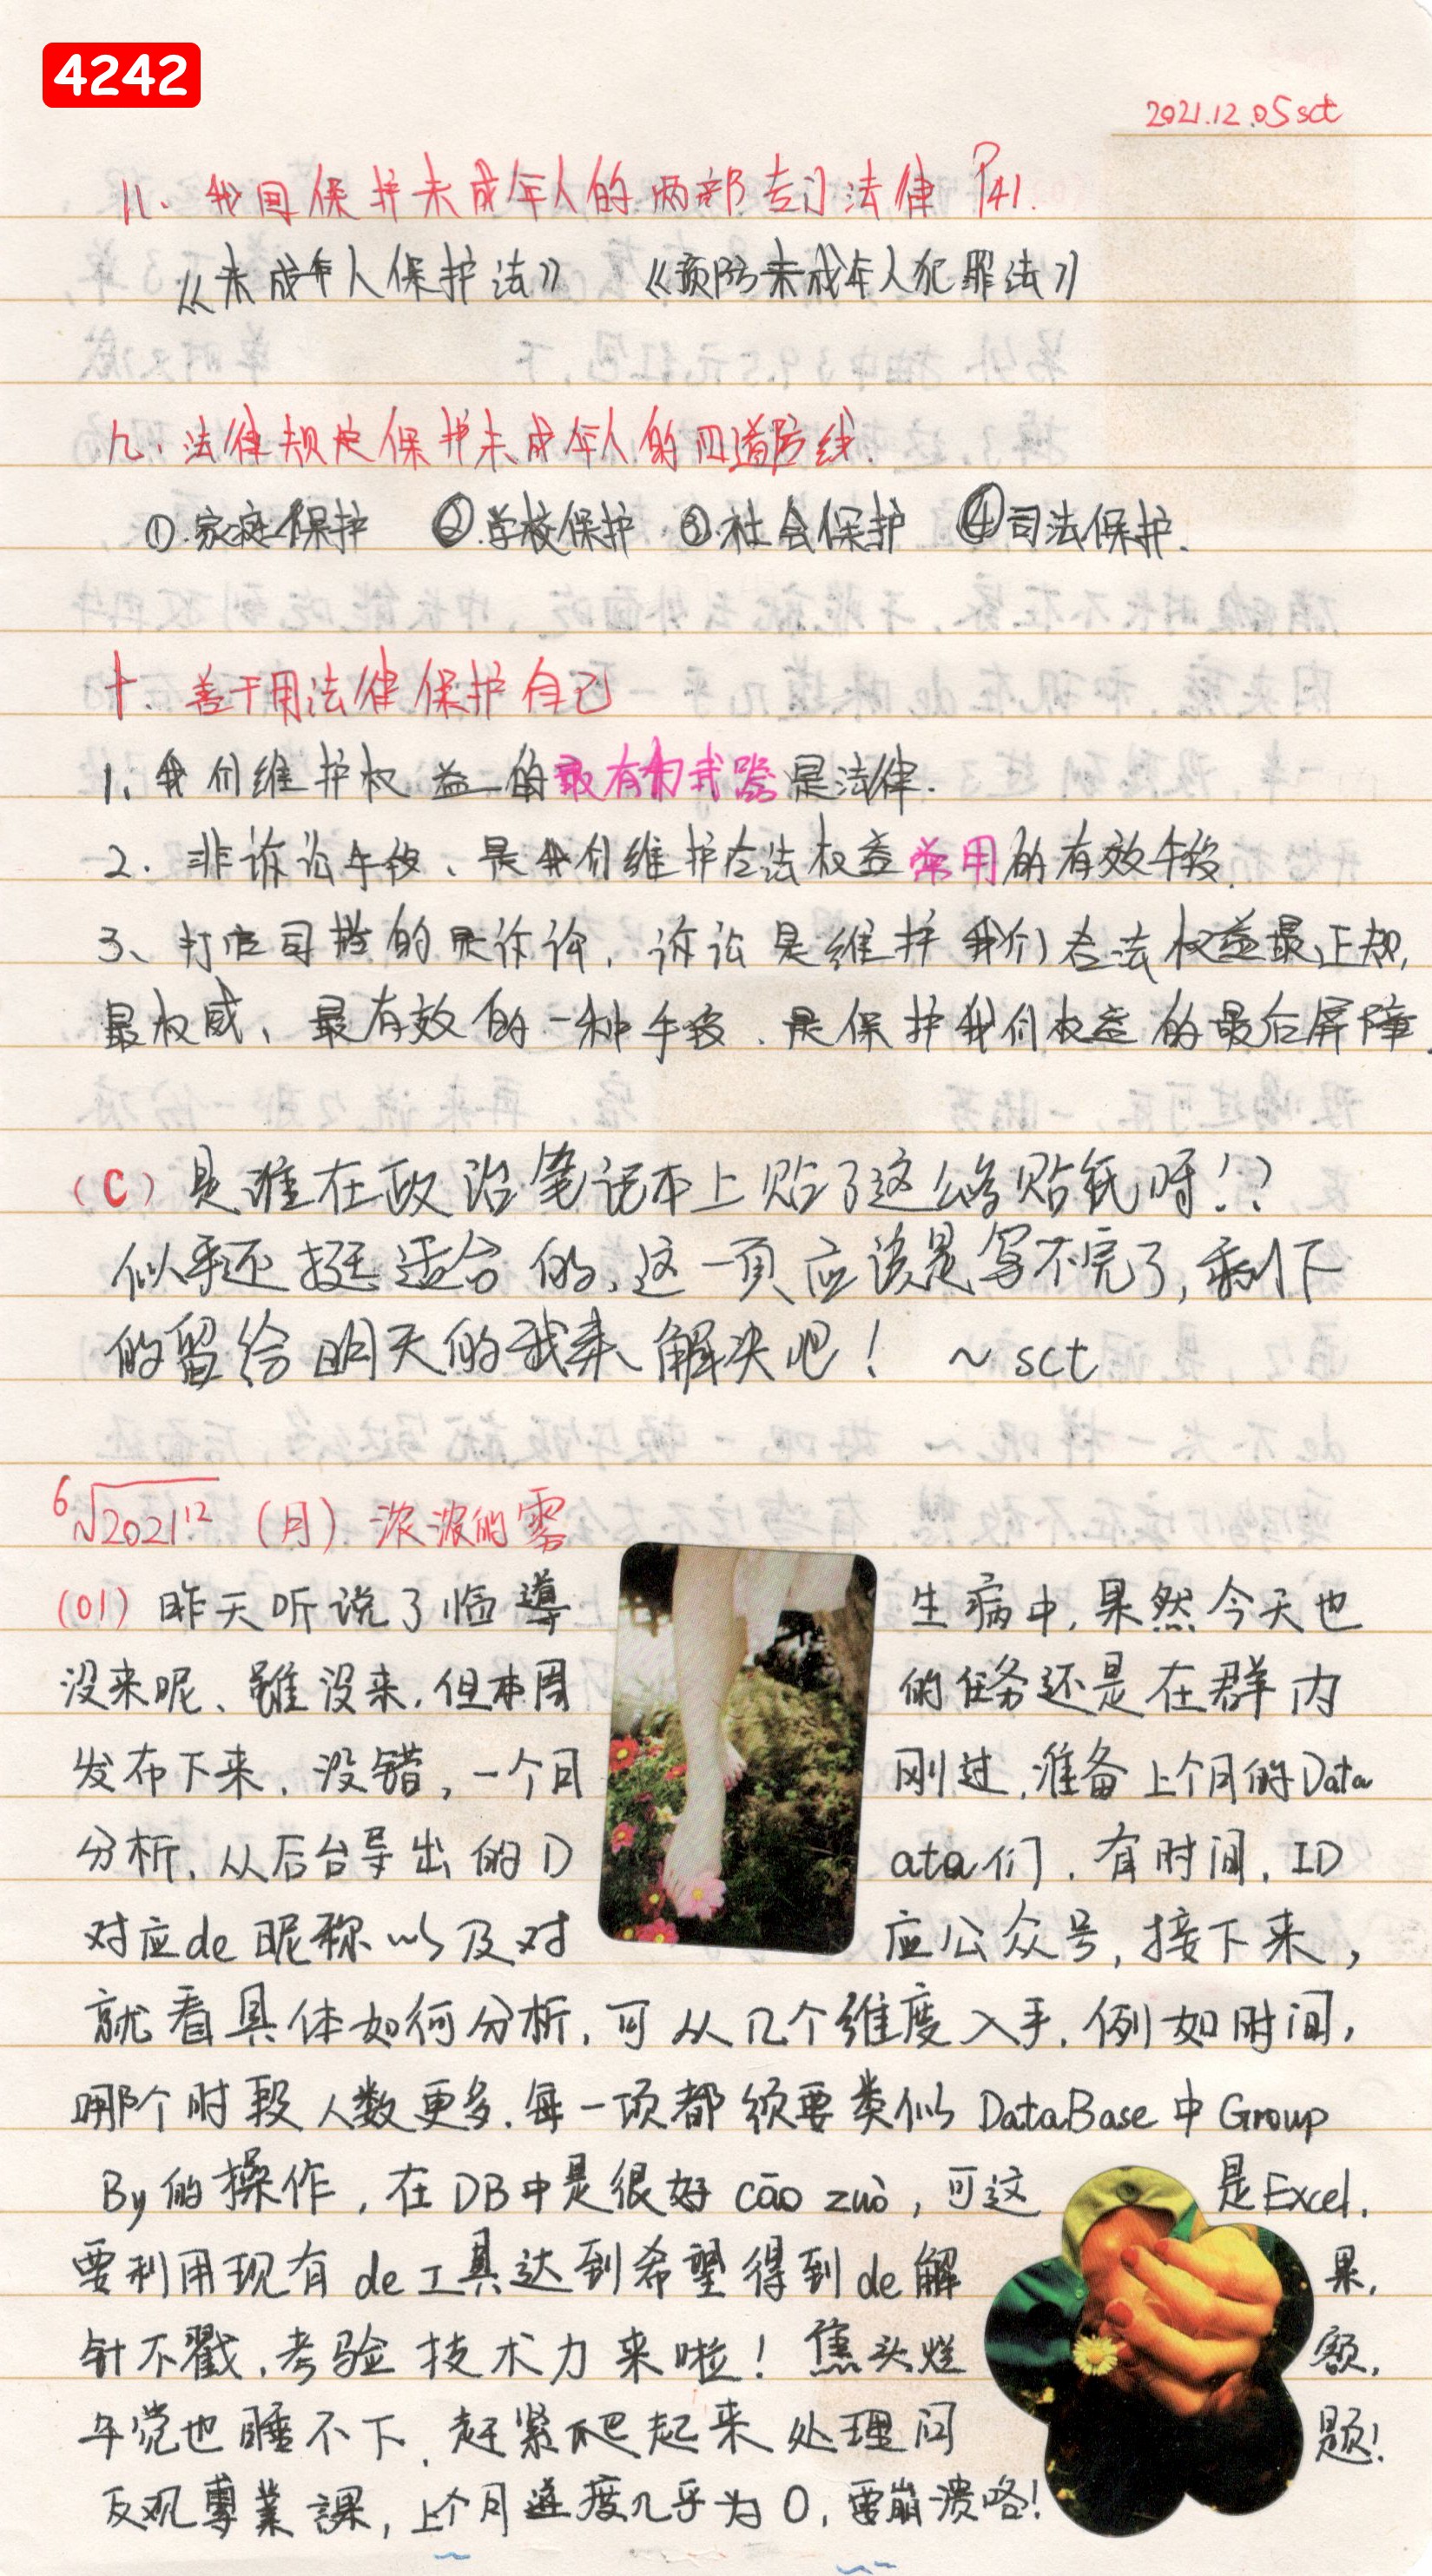 4242
2021.12.05 sct
八、我国保护未成年人的两部专门法律 P41.
《未成年人保护法》 《预防未成年人犯罪法》
九、法律规定保护未成年人的四道防线.
①.家庭保护 ②.学校保护 ③.社会保护 ④司法保护.
十、善于用法律保护自己
1、我们维护权益的最有力武器是法律.
2.非诉讼手段、是我们维护合法权益常用的有效手段.
3、打官司指的是诉讼,诉讼是维护我们合法权益最正规,
最权威、最有效的一种手段、是保护我们权益的最后屏障.
(C)是谁在政治笔记本上贴了这么多贴纸呀!?
似乎还挺适合的,这一页应该是写不完了,剩下
的留给明天的我来解决吧! ~sct
⁶√2021¹² (月).浓浓的雾
(01)昨天听说了临導生病中,果然今天也
没来呢、虽没来,但本周的任务还是在群内
发布下来.没错,一个月刚过,准备上个月的Data
分析.从后台导出的Data们.有时间,ID
对应de昵称以及对应公众号,接下来,
就看具体如何分析,可从几个维度入手.例如时间,
哪个时段人数更多.每一项都须要类似DataBase中Group
By的操作,在DB中是很好cāo zuò,可这是Excel.
要利用现有de工具达到希望得到de解果,
针不戳,考验技术力来啦!焦头烂额,
午觉也睡不下,赶紧爬起来处理问题!
反观專業課,上个月進度几乎为0,要崩溃咯!